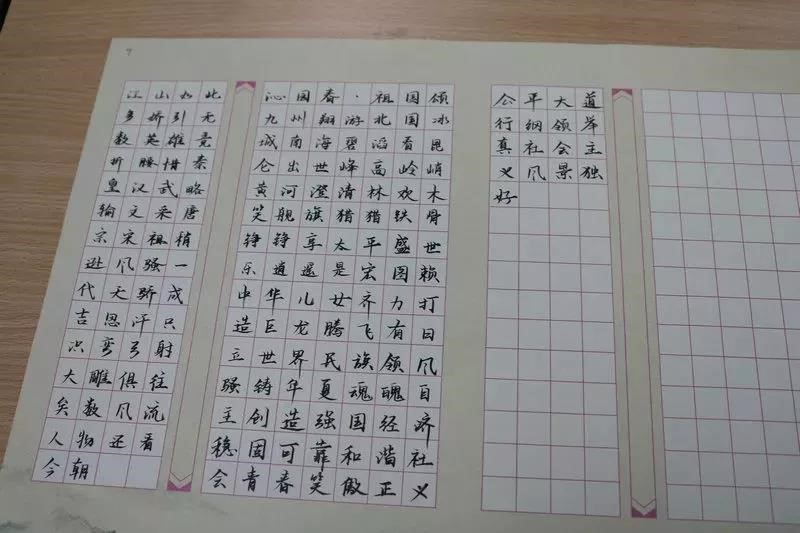 7
江山如此
多娇引无
数英雄竞
折腰惜秦
皇汉武略
输文采唐
宗宋祖稍
逊风骚一
代天骄成
吉思汗只
识弯弓射
大雕俱往
矣数风流
人物还看
今朝
沁园春·祖国颂
九州翔游北国冰
城南海碧滔看昆
仑出世峰高岭峭
黄河澄清林欢木
笑舰旗猎猎铁骨
铮铮享太平盛世
乐逍遥是宏图赖
中华儿女齐力打
造巨龙腾飞有日
立世界民族领风
强铸华夏魂魄自
主创造强国经济
稳固可靠和谐社
会青春笑傲正义
公平大道
行纲领举
真社会主
义风景独
好